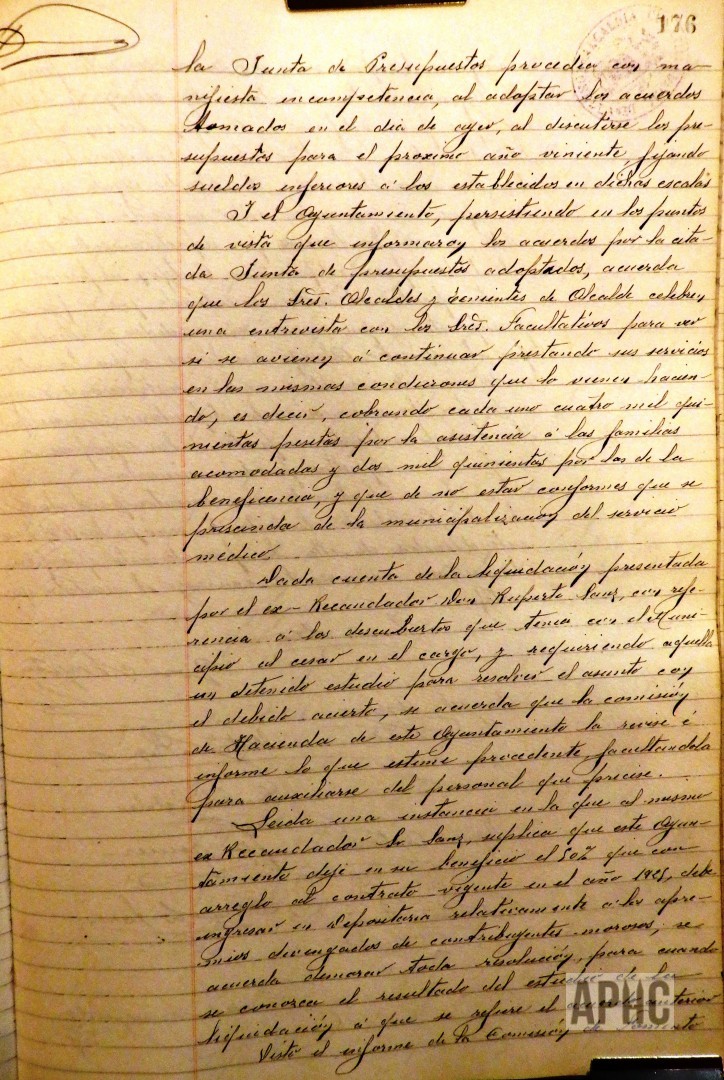 176
la Junta de Presupuestos procedia con ma-
nifiesta incompetencia, al adoptar los acuerdos
tomados en el dia de ayer, al discutirse los pre-
supuestos para el proximo año viniente, fijando
sueldos inferiores á los establecidos en dichas escalas
Y el Ayuntamiento, persistiendo en los puntos
de vista que informaron los acuerdos por la cita-
da Junta de presupuestos adoptados, acuerda
que los Sres. Alcaldes y Tenientes de Alcalde celebren
una entrevista con los Sres. Facultativos para ver
si se avienen á continuar prestando sus servicios
en las mismas condiciones que lo vienen hacien-
do, es decir, cobrando cada uno cuatro mil qui-
nientas pesetas por la asistencia á las familias
acomodadas y dos mil quinientas por las de la
beneficencia, y que de no estar conformes que se
prescinda de la municipalizacion del servicio
médico.
Dada cuenta de la liquidación presentada
por el ex-Recaudador Don Ruperto Sanz, con refe-
rencia á los descubiertos que tenia con el Muni-
cipio al cesar en el cargo, y requiriendo aquella
un detenido estudio para resolver el asunto con
el debido acierto, se acuerda que la comisión
de Hacienda de este Ayuntamiento la revise é
informe lo que estime procedente, facultandola
para auxiliarse del personal que precise.
Leida una instancia en la que al mismo
ex Recaudador Sr Sanz, suplica que este Ayun-
tamiento deje en su beneficio el 50% que con
arreglo al contrato vigente en el año 1925, debe
ingresar en Depositaria relativamente á los apre-
mios devengados de contribuyentes morosos, se
acuerda demorar toda resolución, para cuando
se conozca el resultado del estudio de la
liquidación á que se refiere el acuerdo anterior
Visto el informe de la Comisión de
APHC